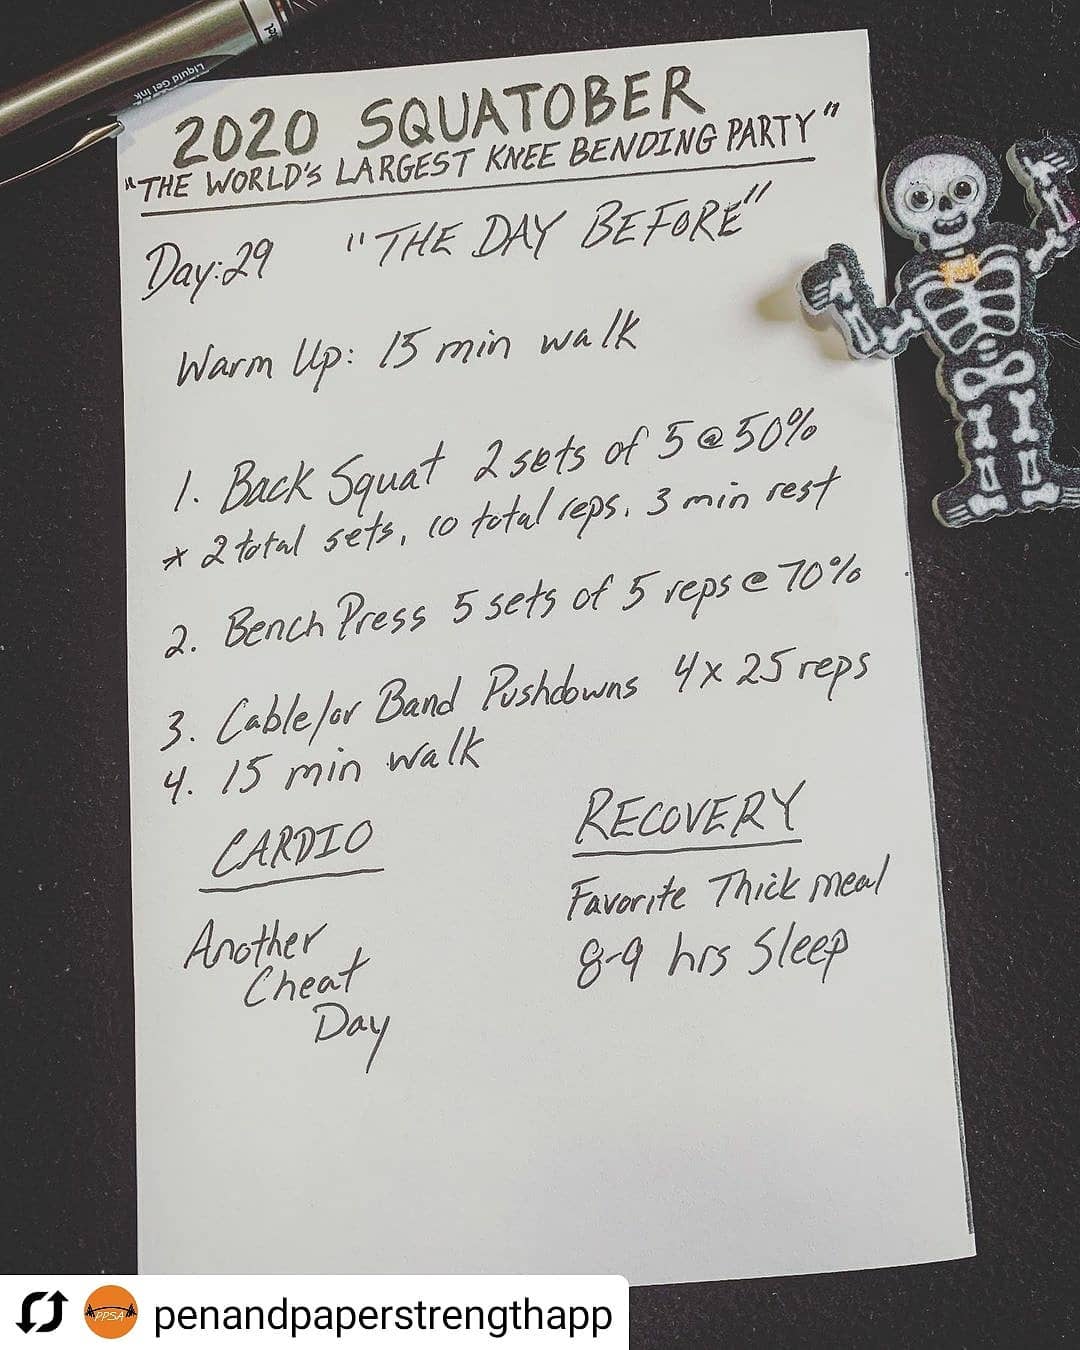 Liquid Gel Ink
2020 SQUATOBER
"THE WORLD'S LARGEST KNEE BENDING PARTY"
Day:29 "THE DAY BEFORE"
Warm Up: 15 min walk
1. Back Squat 2 sets of 5 @ 50%
* 2 total sets, 10 total reps. 3 min rest
2. Bench Press 5 sets of 5 reps @ 70%
3. Cable/or Band Pushdowns 4x 25 reps
4. 15 min walk
CARDIO
Another
Cheat
Day
RECOVERY
Favorite Thick meal
8-9 hrs Sleep
PPSA
penandpaperstrengthapp